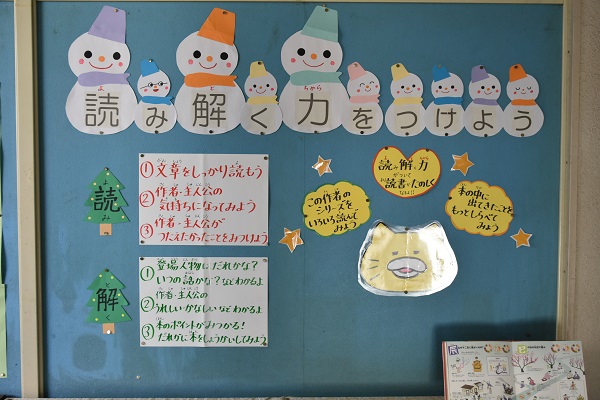 読み解く力をつけよう
読み
①文章をしっかり読もう
②作者・主人公の
気持ちになってみよう
③作者・主人公が
つたえたかったことをみつけよう
解く
①登場人物はだれかな?
いつの話かな?などわかるよ
②作者・主人公の
うれしい・かなしいなどわかるよ
③本のポイントがみつかる!
だれかに本をしょうかいしてみよう
読み解く力
がついて
読書がたのしく
なるよ!!
この作者の
シリーズを
いろいろ読んで
みよう
本の中に
出てきたことを
もっとしらべて
みよう